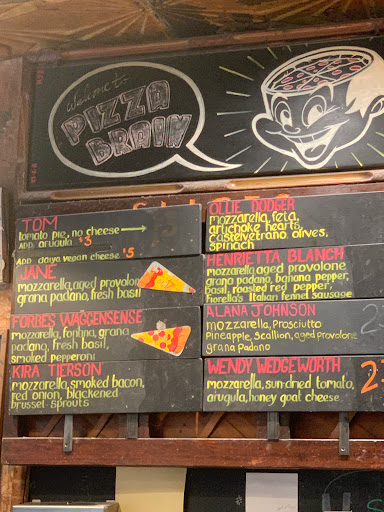 Welcome to
PIZZA
BRAIN
TOM
tomato pie, no cheese
ADD arugula $3
ADD daiya vegan cheese $5
JANE
mozzarella, aged provolone
grana padano, fresh basil
FORBES WAGGENSENSE
mozzarella, fontina, grana
padano, fresh basil,
smoked pepperoni
KIRA TIERSON
mozzarella, smoked bacon,
red onion, blackened
brussel sprouts
OLLIE DODGER
mozzarella, feta,
artichoke hearts,
castelvetrano olives,
spinach
HENRIETTA BLANCH
mozzarella aged provolone
grana padano, banana pepper,
basil, roasted red pepper,
Fiorella's Italian fennel sausage
ALANA JOHNSON
mozzarella, Prosciutto
Pineapple, Scallion, aged provolone
grana padano
WENDY WEDGEWORTH
mozzarella, sun-dried tomato,
arugula, honey goat cheese